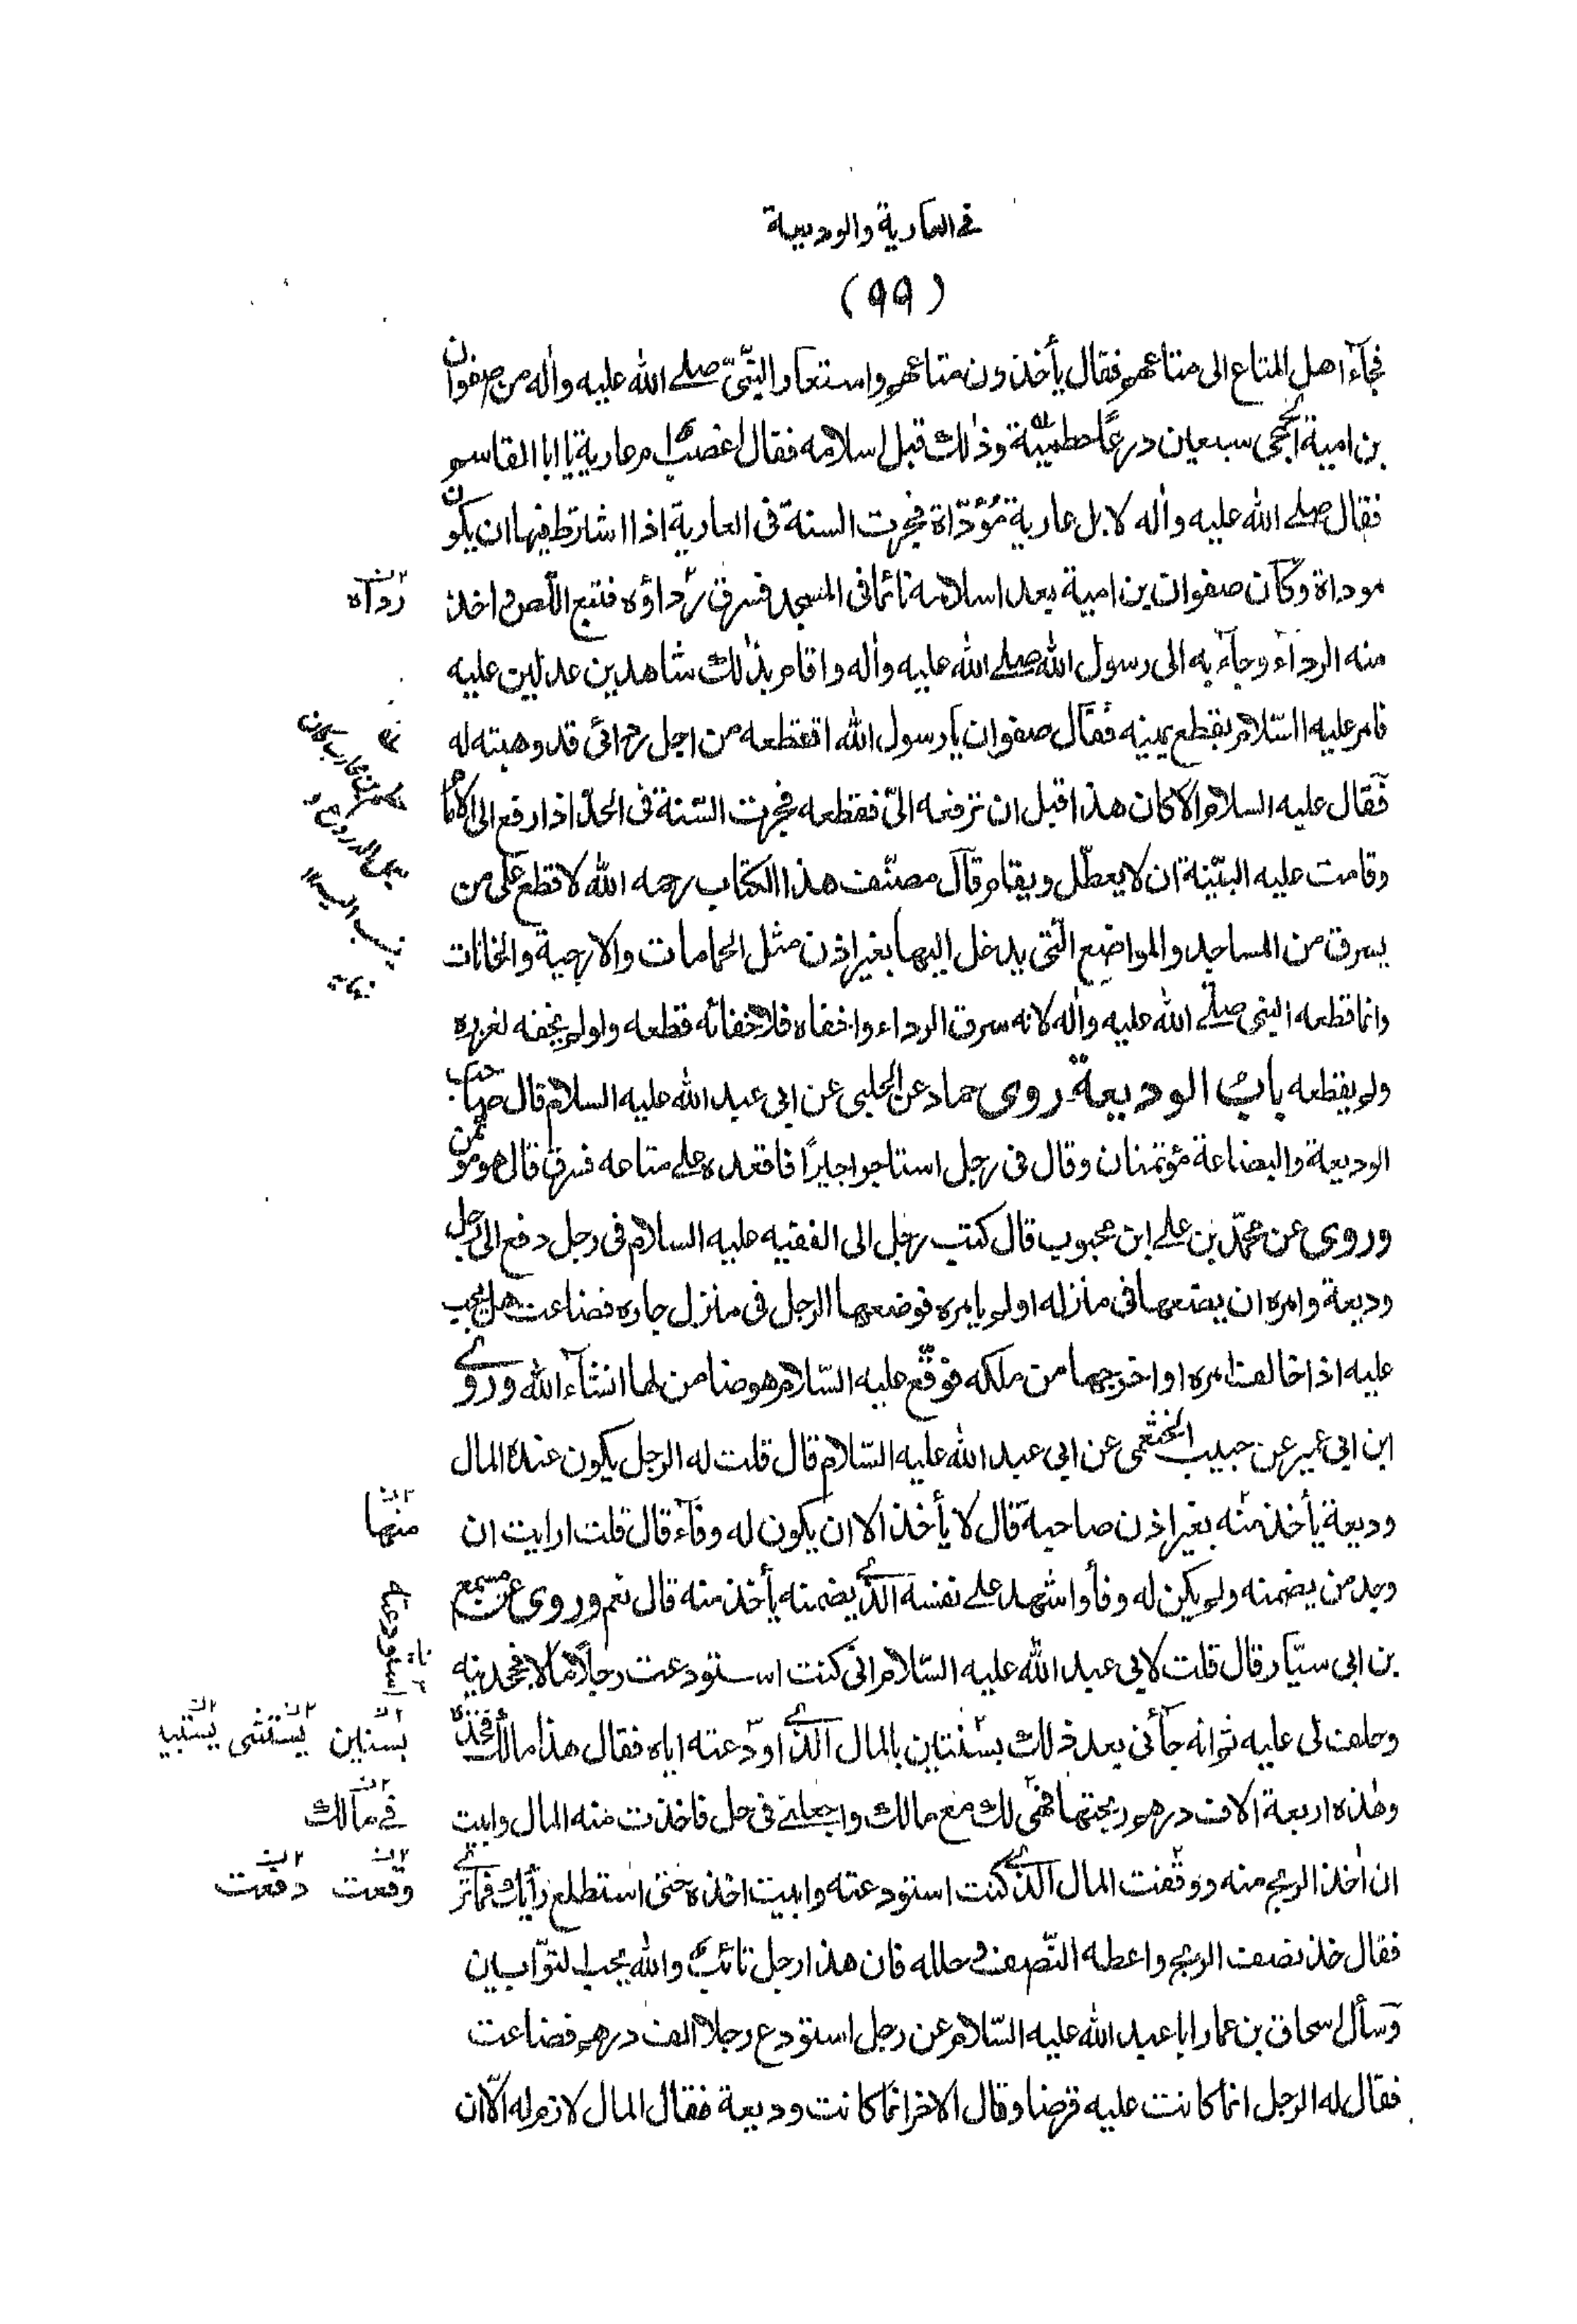 في العارية والوديعة
(٩٩)
فجآء اهل المتاع الى متاعهم فقال يأخذون متاعهم واستعار النّبىّ صلى الله عليه وآله من صفوان
بن امية الجمحى سبعين درعًا حطميّة وذلك قبل اسلامه فقال اغصب ام عارية يا ابا القاسم
فقال صلى الله عليه وآله لا بل عارية مُؤدّاة فجرت السنة فى العارية اذا اشترط فيها ان يكون
موداة وكان صفوان بن امية بعد اسلامه نائما فى المسجد فسرق رداؤه فتبع اللّص واخذ
رداه
منه الرداء وجاء به الى رسول الله صلى الله عليه وآله واقام بذلك شاهدين عدلين عليه
فامر عليه السّلام بقطع يمينه فقال صفوان يا رسول الله اتقطعه من اجل ردائى قد وهبته له
فقال عليه السلام الا كان هذا قبل ان ترفعه الىّ فقطعه فجرت السّنة فى الحدّ اذا رفع الى الامام
وقامت عليه البيّنة ان لا يعطّل ويقام قال مصنّف هذا الكتاب رحمه الله لا قطع على من
يسرق من المساجد والمواضع الّتى يدخل اليها بغير اذن مثل الحمامات والارحية والخانات
وانما قطعه النبى صلى الله عليه وآله لانه سرق الرداء واخفاه فلاخفائه قطعه ولو لم يخفه لعزره
ولم يقطعه باب الوديعة روى حماد عن الحلبى عن ابى عبد الله عليه السلام قال صاحب
الوديعة والبضاعة مؤتمنان وقال فى رجل استاجر اجيرًا فاقعده على متاعه فسرق قال هو مؤتمن
وروى عن محمّد بن على ابن محبوب قال كتب رجل الى الفقيه عليه السلام فى رجل دفع الى رجل
وديعة وامره ان يضعها فى منزله او لم يامره فوضعها الرجل فى منزل جاره فضاعت هل يجب
عليه اذا خالف امره او اخرجها من ملكه فوقّع عليه السّلام هو ضامن لها انشآء الله وروى
ابن ابى عمير عن حبيب الخثعمى عن ابى عبد الله عليه السّلام قال قلت له الرجل يكون عنده المال
وديعة يأخذ منه بغير اذن صاحبه قال لا يأخذ الا ان يكون له وفآء قال قلت ارايت ان
منها
وجد من يضمنه ولم يكن له وفآ واشهد على نفسه الّذى يضمنه يأخذ منه قال نعم وروى عن مسمع
بن ابى سيّار قال قلت لابى عبد الله عليه السّلام انى كنت استودعت رجلًا مالا فجحدنيه
استودعته
وحلف لى عليه ثم انه جآئنى بعد ذلك بسنتين بالمال الّذى اودعته اياه فقال هذا مالك فخذه
بسنين
وهذه اربعة الاف درهم ربحتها فهى لك مع مالك واجعلنى فى حل فاخذت منه المال وابيت
فى مالك
ان اخذ الربح منه ووقّفت المال الّذى كنت استودعته وابيت اخذه حتى استطلع رأيك فما ترى
وقعت دفعت
فقال خذ نصف الربح واعطه النّصف وحلله فان هذا رجل تائب والله يحب التوّابين
وسأل اسحاق بن عمار ابا عبد الله عليه السّلام عن رجل استودع رجلا الف درهم فضاعت
فقال له الرجل انما كانت عليه قرضا وقال الاخر انما كانت وديعة فقال المال لازم له الّا ان